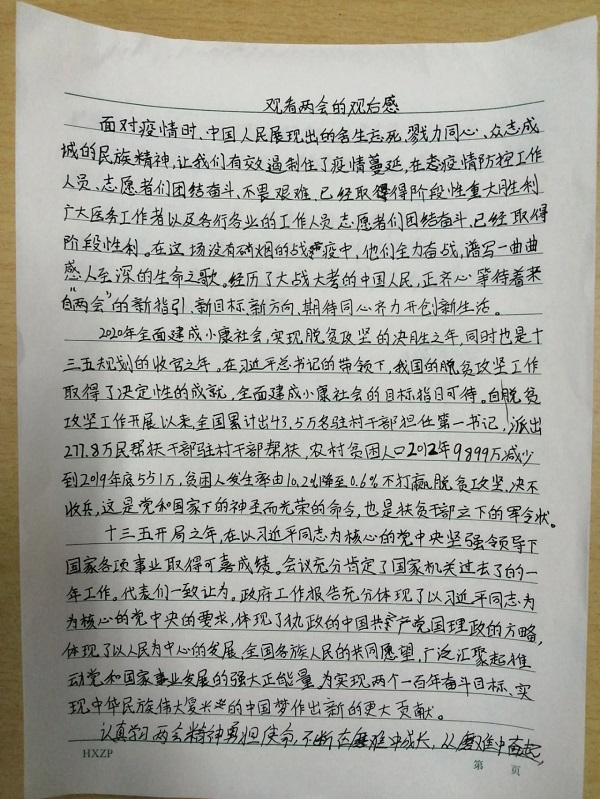 观看两会的观后感
面对疫情时、中国人民展现出的舍生忘死、戮力同心、众志成
城的民族精神,让我们有效遏制住了疫情蔓延,在意疫情防控工作
人员、志愿者们团结奋斗、不畏艰难、已经取得得阶段性重大胜利
广大医务工作者以及各行各业的工作人员志愿者们团结奋斗、已经取得
阶段性利。在这场没有硝烟的战疫中,他们全力奋战,谱写一曲曲
感人至深的生命之歌。经历了大战大考的中国人民,正齐心等待着来
自“两会”的新指引、新目标、新方向、期待同心齐力开创新生活。
2020年全面建成小康社会,实现脱贫攻坚的决胜之年,同时也是十
三五规划的收官之年。在习近平总书记的带领下,我国的脱贫攻坚工作
取得了决定性的成就,全面建成小康社会的目标指日可待。自脱贫
攻坚工作开展以来,全国累计出43.5万名驻村干部担任第一书记,派出
277.8万民帮扶干部驻村干部帮扶,农村贫困人口2012年9899万减少
到2019年底551万,贫困人发生率由10.2%降至0.6%不打赢脱贫攻坚,决不
收兵,这是党和国家下的神圣而光荣的命令,也是扶贫干部立下的军令状。
十三五开局之年,在以习近平同志为核心的党中央坚强领导下
国家各项事业取得可喜成绩。会议充分肯定了国家机关过去了的一
年工作。代表们一致让为。政府工作报告充分体现了以习近平同志为
为核心的党中央的要求,体现了执政的中国共产党国理政的方略,
体现了以人民为中心的发展,全国各族人民的共同愿望,广泛汇聚起推
动党和国家事业发展的强大正能量。为实现两个一百年奋斗目标、实
现中华民族伟大复兴的中国梦作出新的更大贡献。
认真学习两会精神勇担使命,不断在磨难中成长,从磨难中奋起,
HXZP
第 页